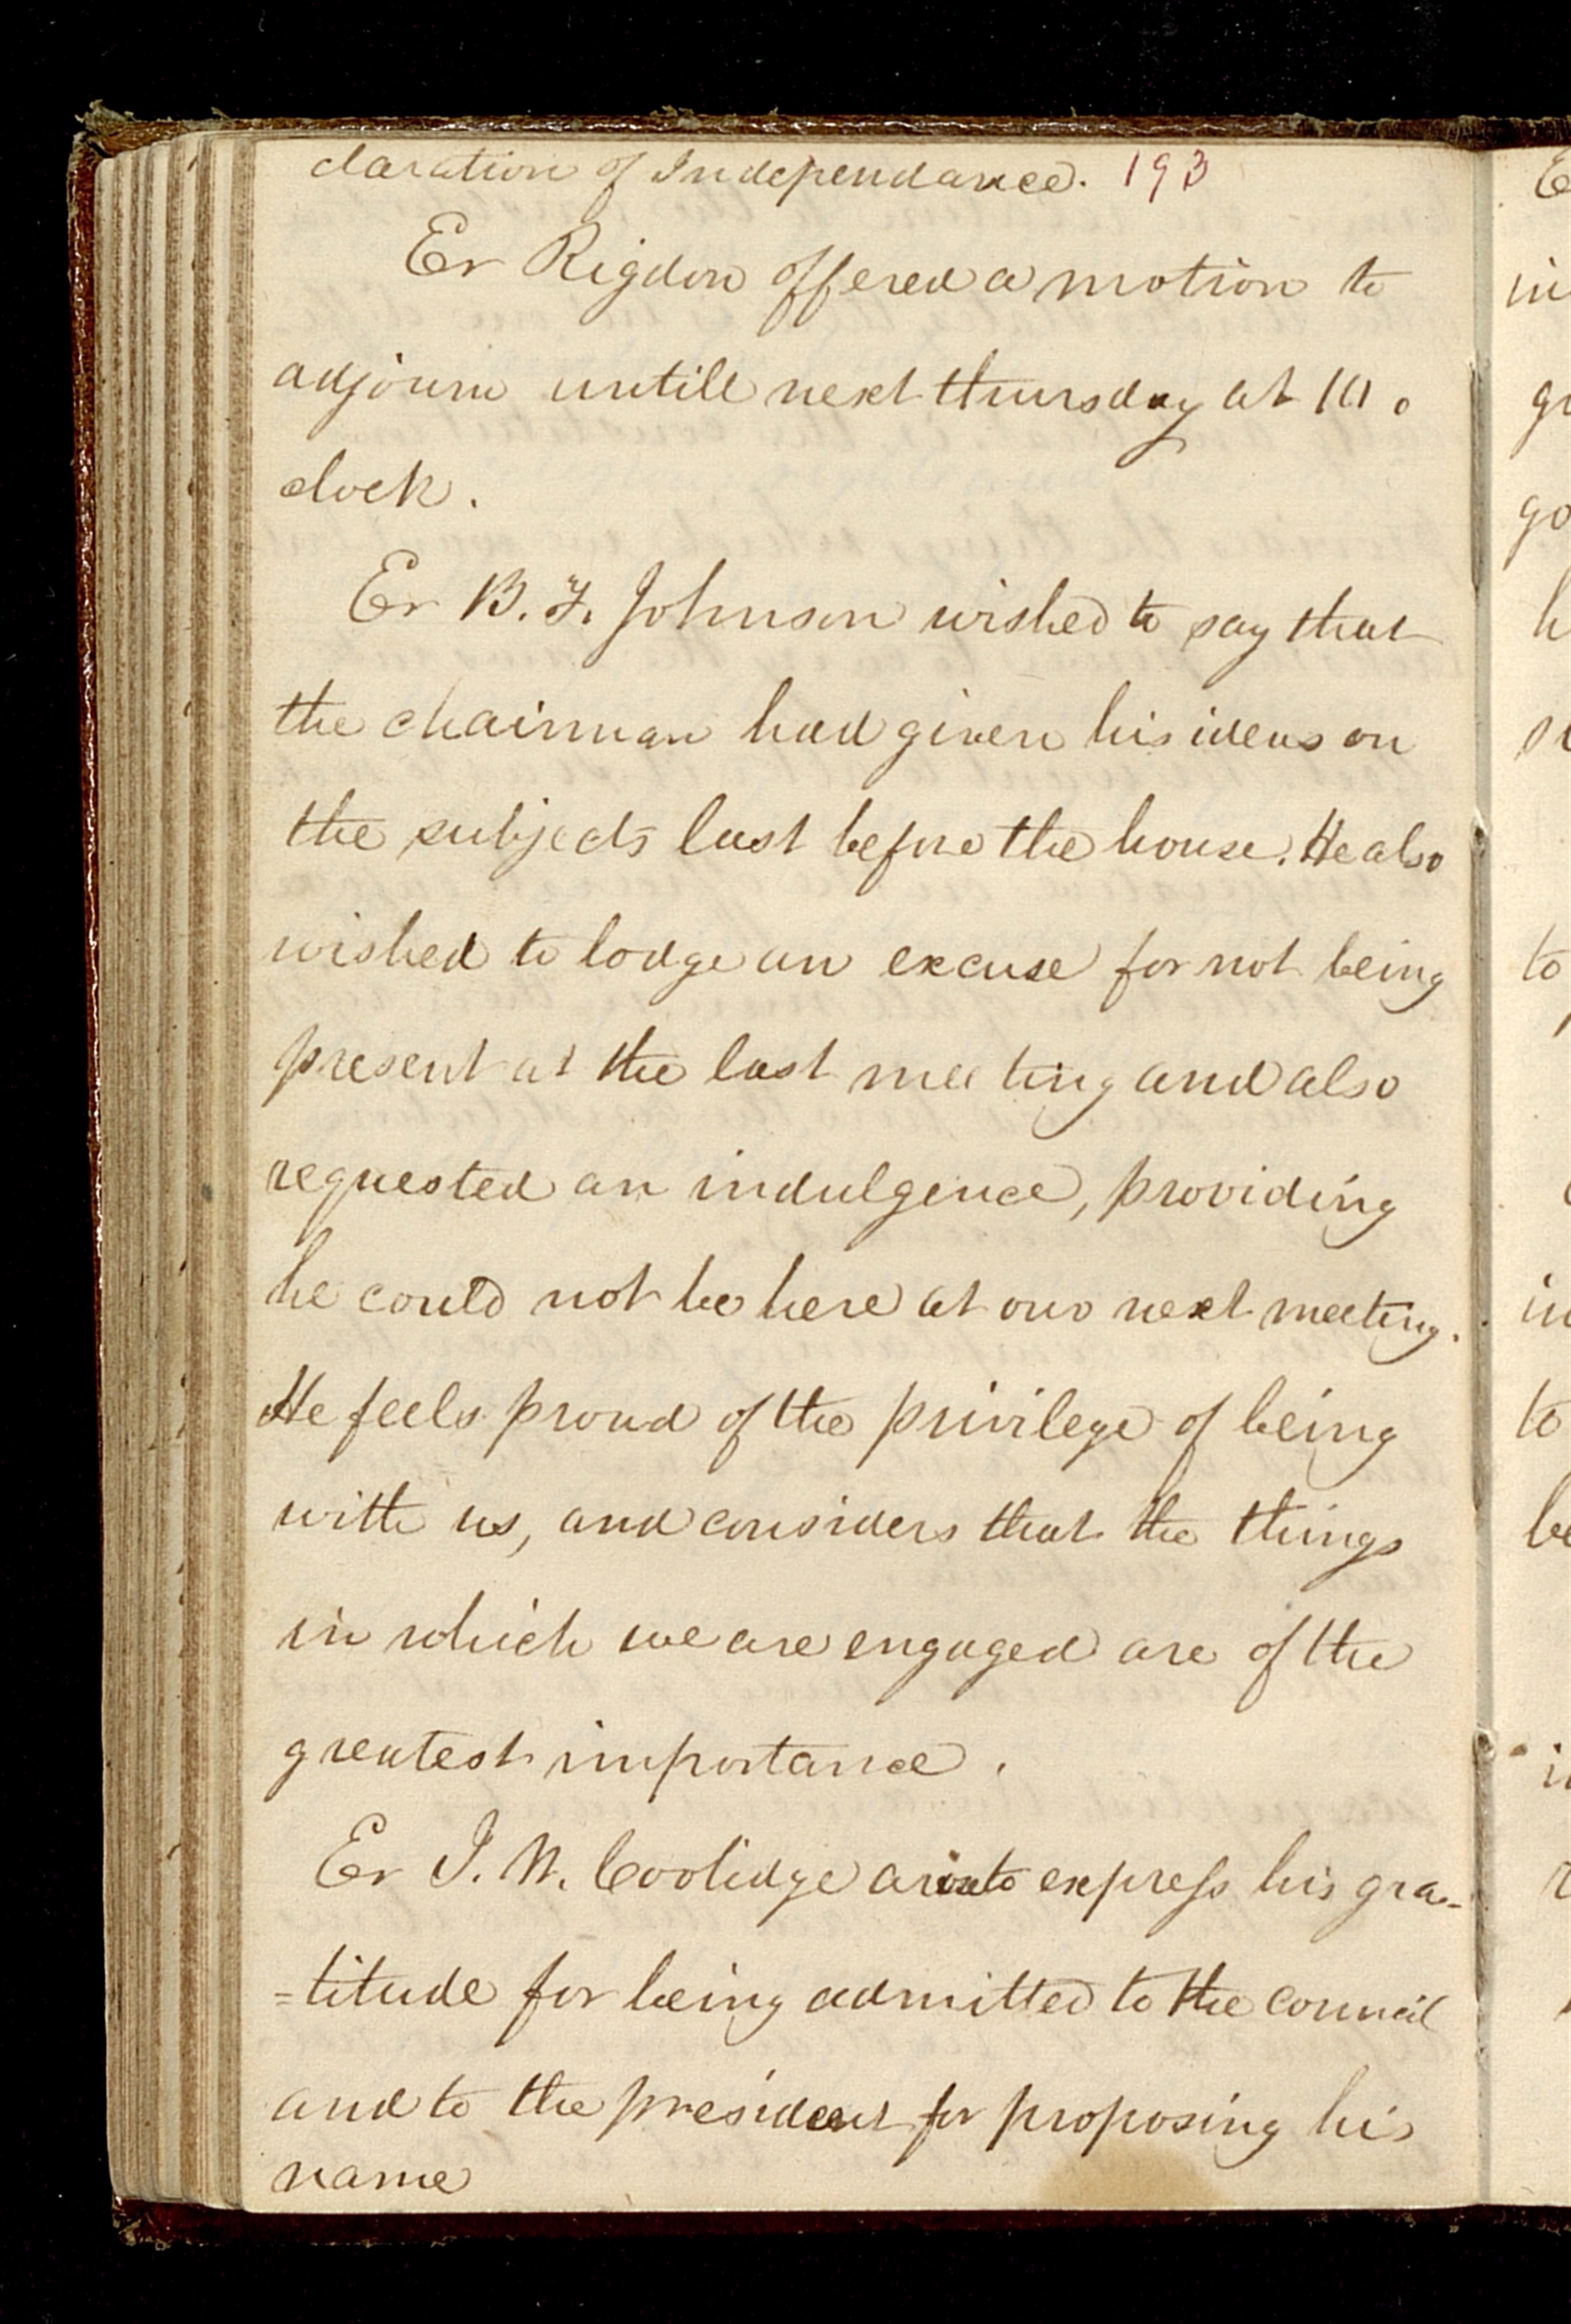 claration of Independance. 193
Er Rigdon offered a motion to
adjourn untill next thursday at 10 o
clock.
Er B. F. Johnson wished to say that
the chairman had given his ideas on
the subjects last before the house. He also
wished to lodge an excuse for not being
present at the last meeting and also
requested an indulgence, providing
he could not be here at our next meeting.
He feels proud of the privilege of being
with us, and considers that the things
in which we are engaged are of the
greatest importance.
Er J. W. Coolidge to express his gra-
=titude for being admitted to the council
and to the president for proposing his
name